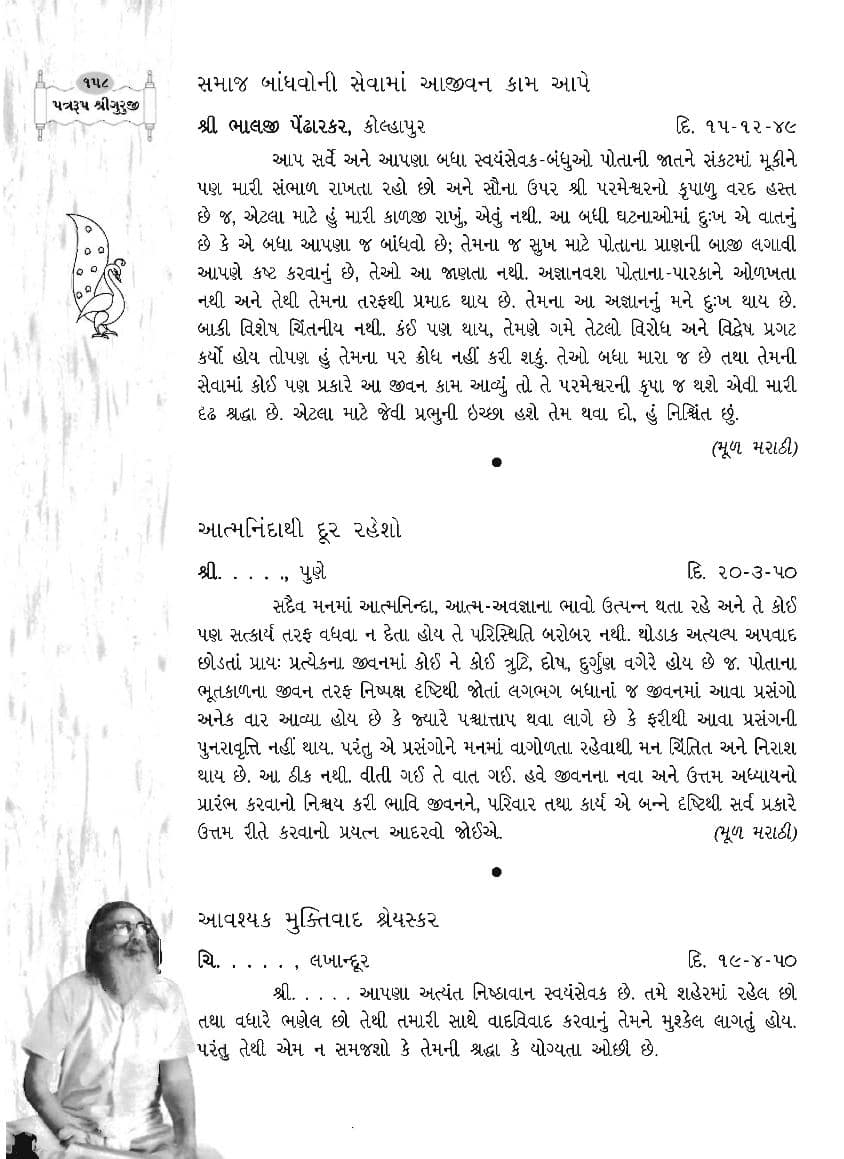 ૧૫૮
પત્રરૂપ શ્રીગુરુજી
સમાજ બાંધવોની સેવામાં આજીવન કામ આપે
શ્રી ભાલજી પેંઢારકર, કોલ્હાપુર દિ. ૧૫-૧૨-૪૯
આપ સર્વે અને આપણા બધા સ્વયંસેવક-બંધુઓ પોતાની જાતને સંકટમાં મૂકીને
પણ મારી સંભાળ રાખતા રહો છો અને સૌના ઉપર શ્રી પરમેશ્વરનો કૃપાળુ વરદ હસ્ત
છે જ, એટલા માટે હું મારી કાળજી રાખું, એવું નથી. આ બધી ઘટનાઓમાં દુઃખ એ વાતનું
છે કે એ બધા આપણા જ બાંધવો છે; તેમના જ સુખ માટે પોતાના પ્રાણની બાજી લગાવી
આપણે કષ્ટ કરવાનું છે, તેઓ આ જાણતા નથી. અજ્ઞાનવશ પોતાના-પારકાને ઓળખતા
નથી અને તેથી તેમના તરફથી પ્રમાદ થાય છે. તેમના આ અજ્ઞાનનું મને દુઃખ થાય છે.
બાકી વિશેષ ચિંતનીય નથી. કંઈ પણ થાય, તેમણે ગમે તેટલો વિરોધ અને વિદ્વેષ પ્રગટ
કર્યો હોય તોપણ હું તેમના પર ક્રોધ નહીં કરી શકું. તેઓ બધા મારા જ છે તથા તેમની
સેવામાં કોઈ પણ પ્રકારે આ જીવન કામ આવ્યું તો તે પરમેશ્વરની કૃપા જ થશે એવી મારી
દૃઢ શ્રદ્ધા છે. એટલા માટે જેવી પ્રભુની ઇચ્છા હશે તેમ થવા દો, હું નિશ્ચિંત છું.
(મૂળ મરાઠી)
•
આત્મનિંદાથી દૂર રહેશો
શ્રી. . . . ., પુણે દિ. ૨૦-૩-૫૦
સદૈવ મનમાં આત્મનિન્દા, આત્મ-અવજ્ઞાના ભાવો ઉત્પન્ન થતા રહે અને તે કોઈ
પણ સત્કાર્ય તરફ વધવા ન દેતા હોય તે પરિસ્થિતિ બરોબર નથી. થોડાક અત્યલ્પ અપવાદ
છોડતાં પ્રાયઃ પ્રત્યેકના જીવનમાં કોઈ ને કોઈ ત્રુટિ, દોષ, દુર્ગુણ વગેરે હોય છે જ. પોતાના
ભૂતકાળના જીવન તરફ નિષ્પક્ષ દૃષ્ટિથી જોતાં લગભગ બધાનાં જ જીવનમાં આવા પ્રસંગો
અનેક વાર આવ્યા હોય છે કે જ્યારે પશ્ચાત્તાપ થવા લાગે છે કે ફરીથી આવા પ્રસંગની
પુનરાવૃત્તિ નહીં થાય. પરંતુ એ પ્રસંગોને મનમાં વાગોળતા રહેવાથી મન ચિંતિત અને નિરાશ
થાય છે. આ ઠીક નથી. વીતી ગઈ તે વાત ગઈ. હવે જીવનના નવા અને ઉત્તમ અધ્યાયનો
પ્રારંભ કરવાનો નિશ્ચય કરી ભાવિ જીવનને, પરિવાર તથા કાર્ય એ બન્ને દૃષ્ટિથી સર્વ પ્રકારે
ઉત્તમ રીતે કરવાનો પ્રયત્ન આદરવો જોઈએ. (મૂળ મરાઠી)
•
આવશ્યક મુક્તિવાદ શ્રેયસ્કર
ચિ. . . . . . , લખાન્દૂર દિ. ૧૯-૪-૫૦
શ્રી. . . . . આપણા અત્યંત નિષ્ઠાવાન સ્વયંસેવક છે. તમે શહેરમાં રહેલ છો
તથા વધારે ભણેલ છો તેથી તમારી સાથે વાદવિવાદ કરવાનું તેમને મુશ્કેલ લાગતું હોય.
પરંતુ તેથી એમ ન સમજશો કે તેમની શ્રદ્ધા કે યોગ્યતા ઓછી છે.